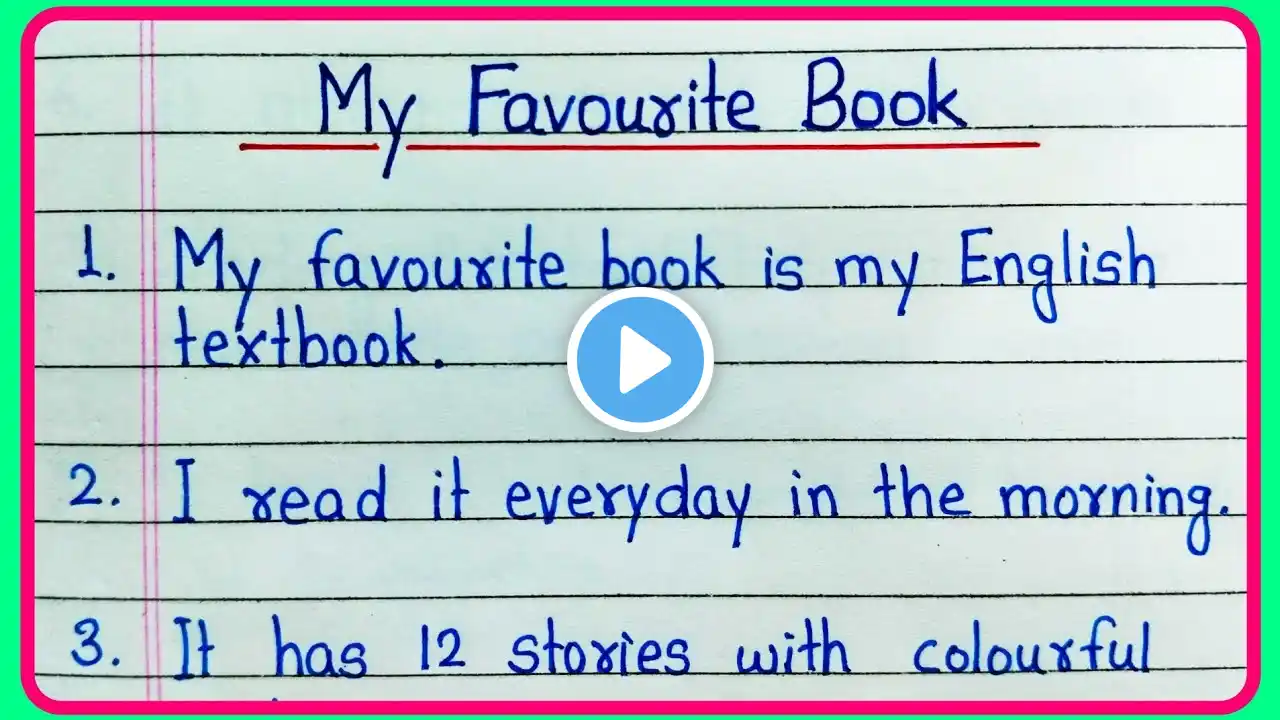 My Favourite Book
1. My favourite book is my English
textbook.
2. I read it everyday in the morning.
3. It has 12 stories with colourful